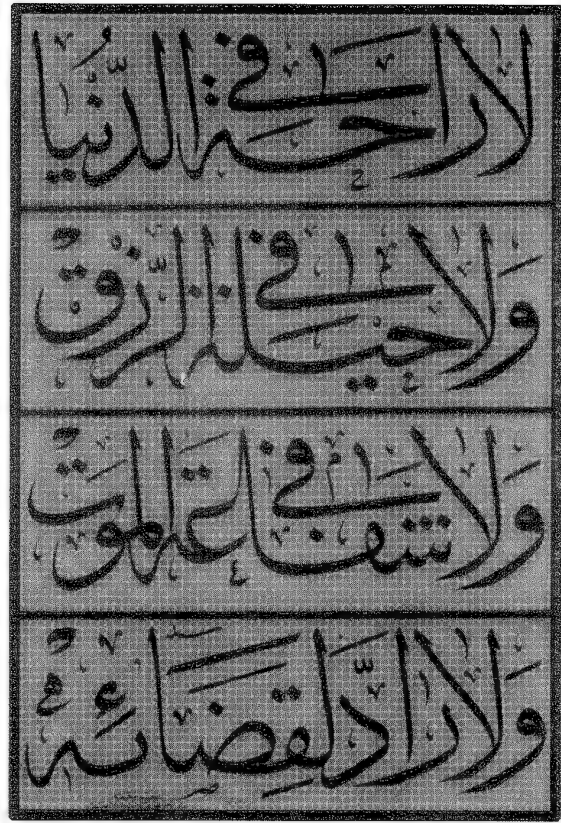 لا راحة في الدنيا
ولا حيلة في الرزق
ولا شفاعة في الموت
ولا راد لقضائه